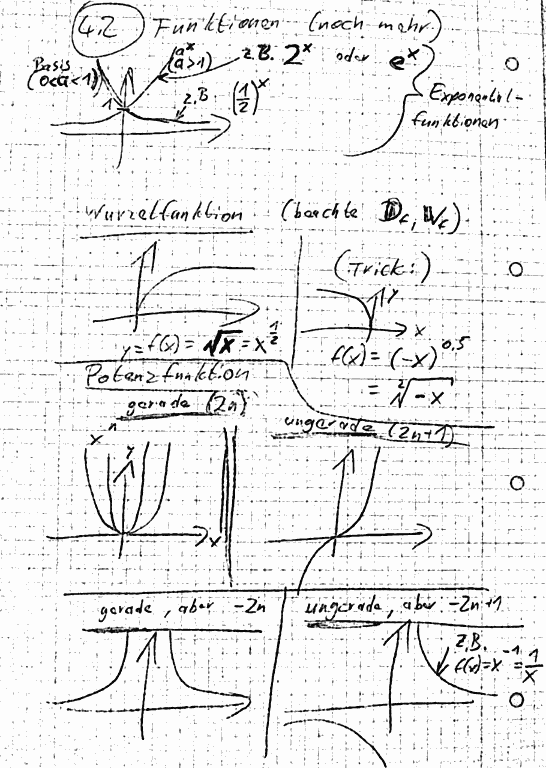 4.2 Funktionen (noch mehr)
Basis
(0<a<1)
a^x
(a>1)
z.B. 2^x oder e^x
1
z.B. (1/2)^x
Exponential-
funktionen
Wurzelfunktion (beachte D_f, W_f)
(Trick:)
y
x
y = f(x) = √x = x^{1/2}
f(x) = (-x)^{0,5}
= ²√-x
Potenzfunktion
gerade (2n)
ungerade (2n+1)
x^n
y
x
gerade, aber -2n
ungerade, aber -2n+1
z.B.
f(x)=x^{-1} = 1/x